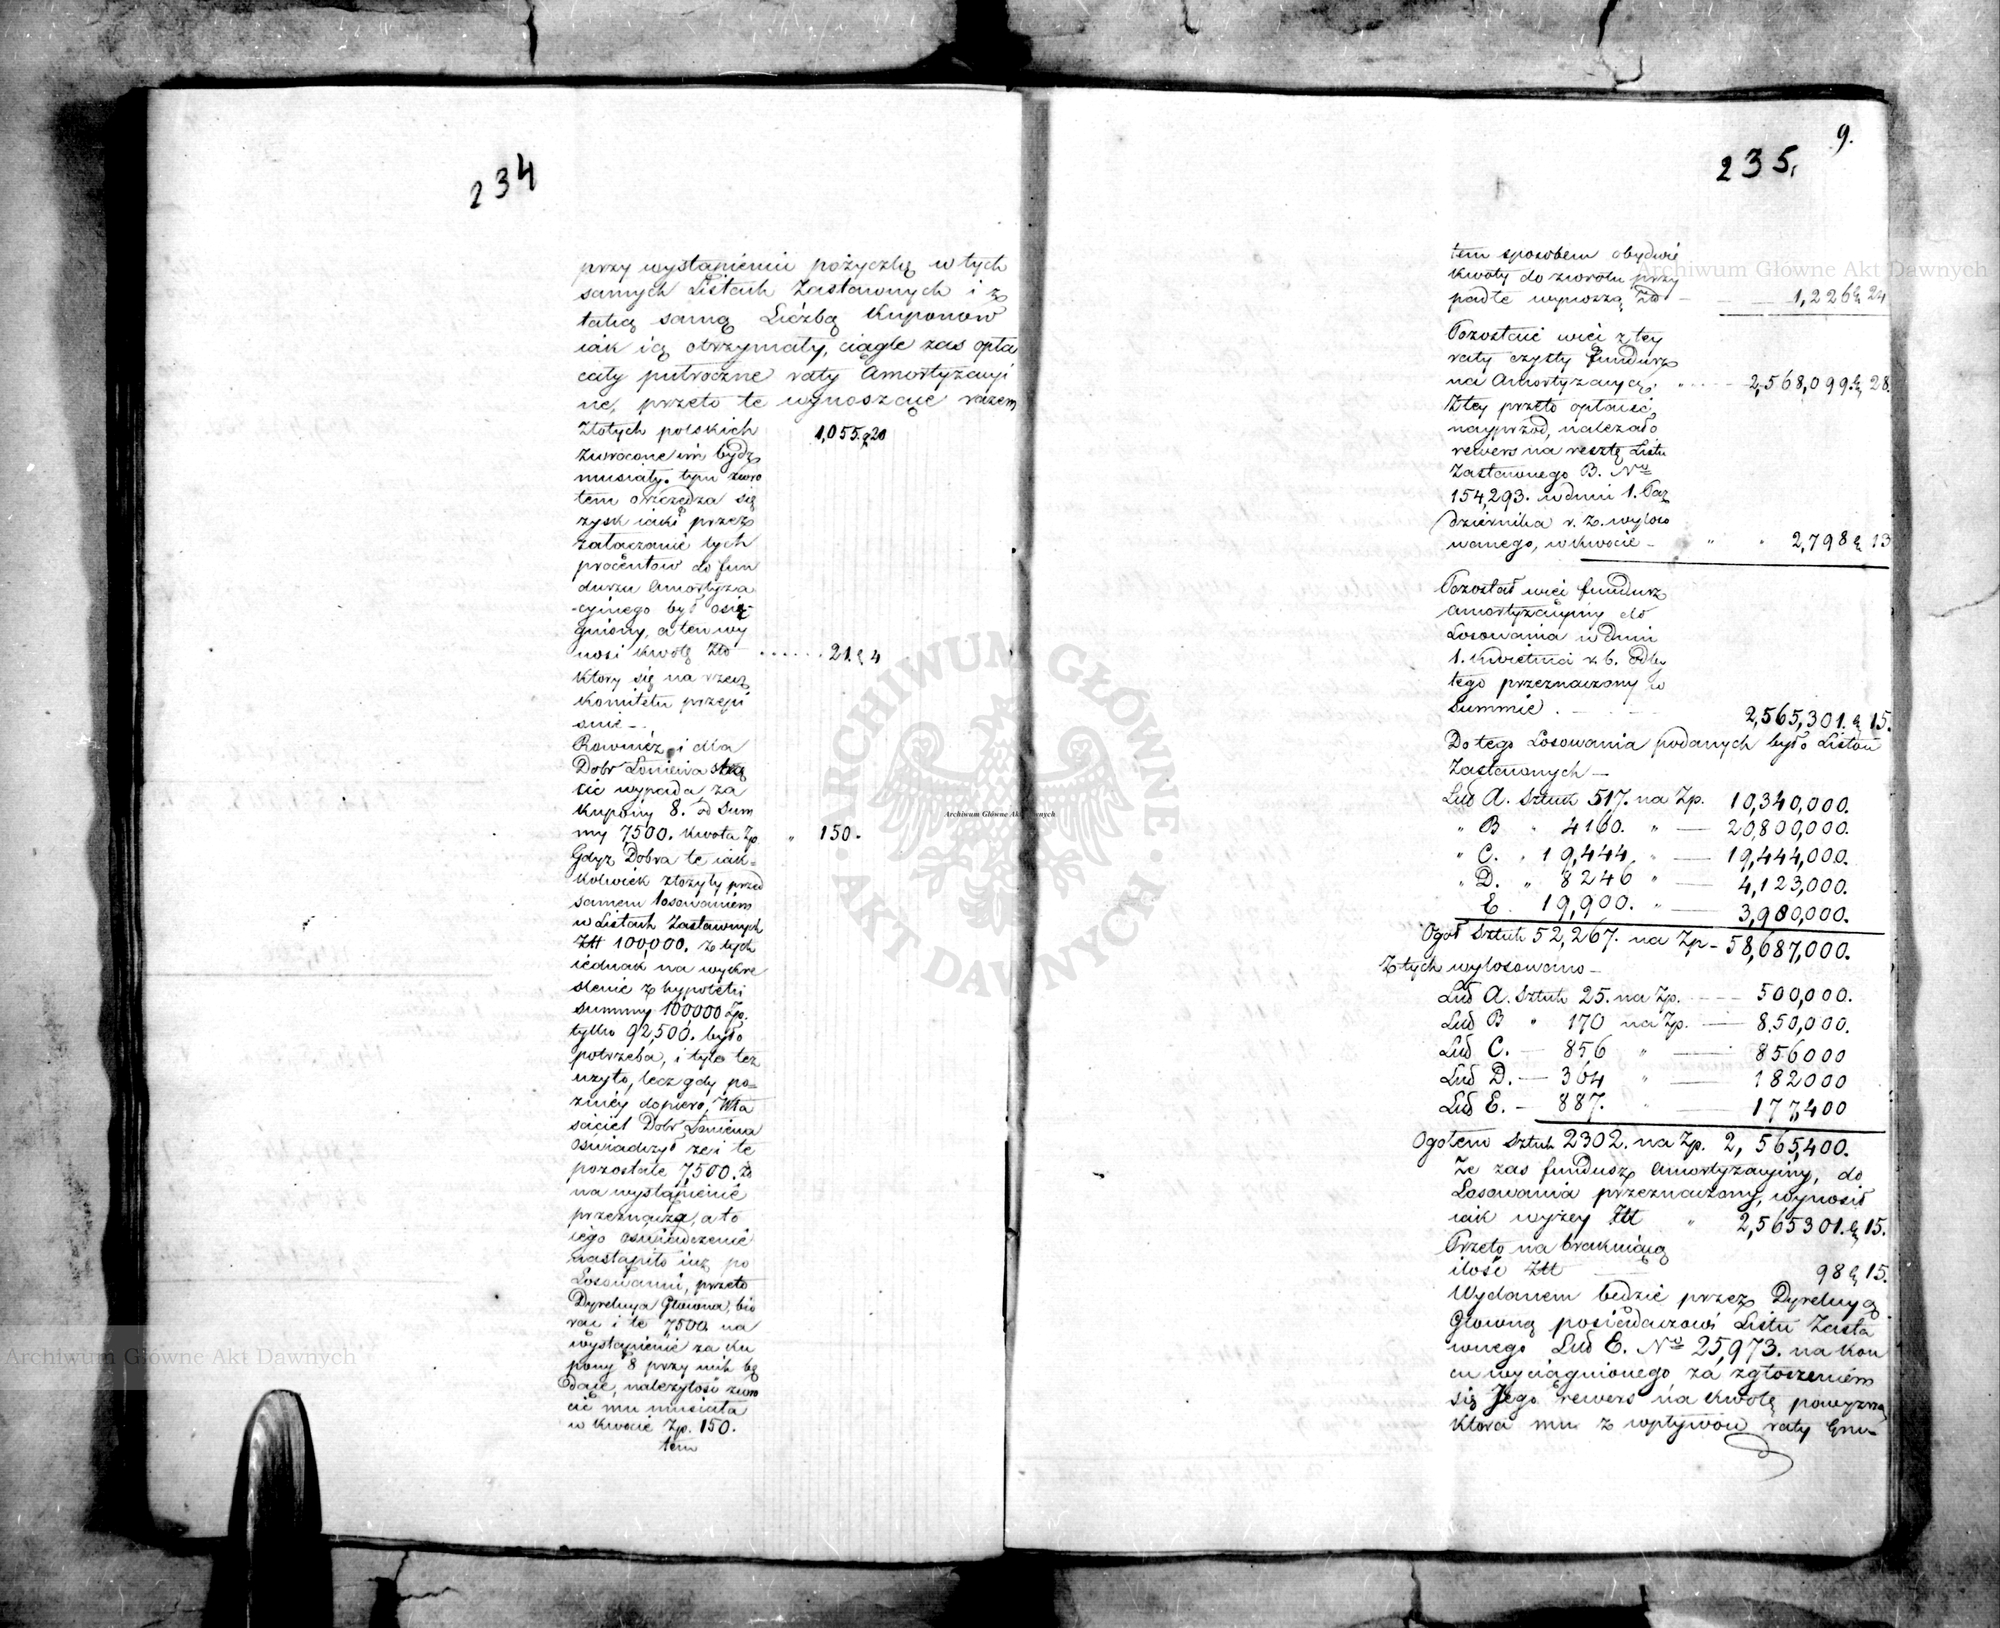 234
przy wystąpieniu pożyczkę w tych
samych Listach Zastawnych i z
taką samą Liczbą Kuponów
iak ią otrzymały, ciągle zas opła
cały pułroczne raty Amortyzacyi
ne, przeto te wynoszące razem
Złotych polskich 1,055. g 20
zwrócone im bydź
musiały. tym zwro
tem oszczędza się
zysk iaki przez
załączanie tych
procentow do fun
duszu Amortyza
cyinego był osią-
gniony, a ten wy
nosi kwotę Złt ...... 21. g 4
ktory się na rzecz
Komitetu przepi
suie -.
Rownież i dla
Dobr Łoniewa
cić wypada za
kupony 8. od Sum
my 7500. kwota Zp. " 150.
Gdyż Dobra te iak=
kolwiek złożyły przed
samem losowaniem
w Listach Zastawnych
Złt 100,000, z tych
iednak na wykre
slenie z hypoteki
summy 100000 Zp.
tylko 92,500. było
potrzeba, i tyle też
użyto, lecz gdy po=
zniey dopiero, Wła
sciciel Dobr Łoniewa
Oświadczył że i te
pozostałe 7500. Zł
na wystąpienie
przeznącza, a to
iego oświadczenie
nastąpiło iuż po
Losowaniu, przeto
Dyrekcya Głowna, bio
rąc i te 7500 na
wystąpienie za ku
pony 8 przy nich bę
dące, należytość zwró
cić mu musiała
w kwocie Zp. 150.
tem
9.
235.
tem sposobem obydwie
kwoty do zwrotu przy
padłe wynoszą Złt — 1,226 g 24
Pozostaie więc z tey
raty czysty fundusz
na Amortyzacyą. " 2,568,099. g 28.
Z tey przeto opłacić,
nayprzód, należało
rewers na resztę Listu
Zastawnego B. No
154,293. w dniu 1. Paz
dziernika r. z. wyloso
wanego, w kwocie - " " 2,798 g 13
Pozostał więc fundusz
amortyzacyiny do
Losowania w dniu
1. Kwietnia r. b. Odby
tego przeznaczony w
Summie . — 2,565,301. g 15.
Do tego Losowania podanych było Listow
Zastawnych —
Lit A. Sztuk 517. na Zp. 10,340,000.
" B " 4160. " — 20,800,000.
" C. " 19,444. " — 19,444,000.
" D. " 8246 " — 4,123,000.
E 19,900. " — 3,980,000.
Ogoł Sztuk 52,267. na Zp - 58,687,000.
Z tych wylosowano —
Lit A. Sztuk 25. na Zp. — 500,000.
Lit B " 170 na Zp. — 850,000.
Lit C. — 856 " — 856000
Lit D. — 364 " — 182000
Lit E. — 887. " — 177,400
Ogołem Sztuk 2302. na Zp. 2,565,400.
Ze zas fundusz Amortyzacyiny, do
Losowania przeznaczony, wynosił
iak wyżey Złt " 2,565301. g 15.
Przeto na brakuiącą
ilość Złt — 98 g 15.
Wydanem będzie przez Dyrekcyą
Główną posiadaczowi Listu Zasta
wnego Lit E. No 25,973. na koń
cu wyciągnionego za zgłoszeniem
się Jego rewers na kwotę powyższą
która mu z wpływow raty Gru-
Archiwum Główne Akt Dawnych
Archiwum Główne Akt Dawnych
Archiwum Główne Akt Dawnych
ARCHIWUM GŁÓWNE AKT DAWNYCH